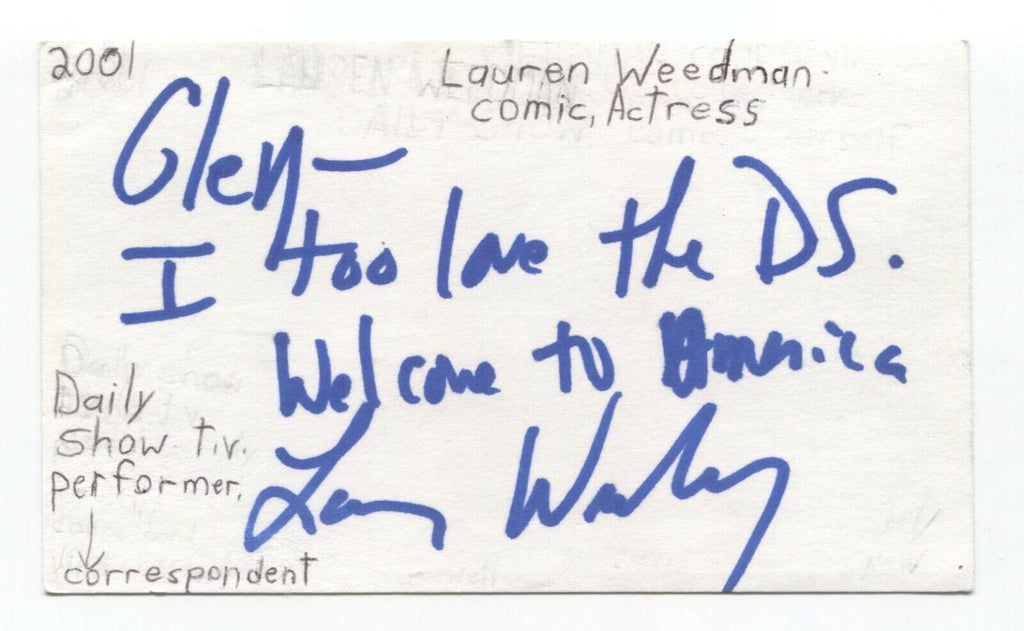 2001
Lauren Weedman.
comic, Actress
Glen—
I too love the DS.
Welcome to America
Daily
Show t.v.
performer,
correspondent